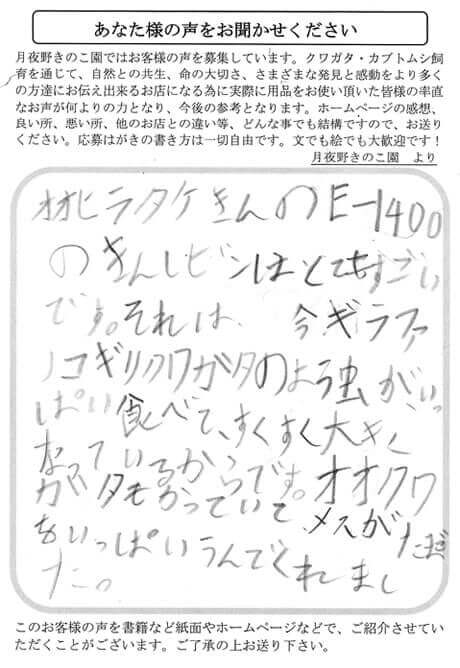 あなた様の声をお聞かせください
月夜野きのこ園ではお客様の声を募集しています。クワガタ・カブトムシ飼
育を通じて、自然との共生、命の大切さ、さまざまな発見と感動をより多く
の方達にお伝え出来るお店になる為に実際に用品をお使い頂いた皆様の率直
なお声が何よりの力となり、今後の参考となります。ホームページの感想、
良い所、悪い所、他のお店との違い等、どんな事でも結構ですので、お送り
ください。応募はがきの書き方は一切自由です。文でも絵でも大歓迎です！
月夜野きのこ園　より
オオヒラタケきんのE-1400
のきんしビンはとてもすごい
です。それは、今ギラファ
ノコギリクワガタのよう虫がいっ
ぱい食べて、すくすく大きく
なっているからです。オオクワ
ガタもかっていて メスがたまご
をいっぱいうんでくれまし
た。
このお客様の声を書籍など紙面やホームページなどで、ご紹介させてい
ただくことがございます。ご了承の上お送り下さい。